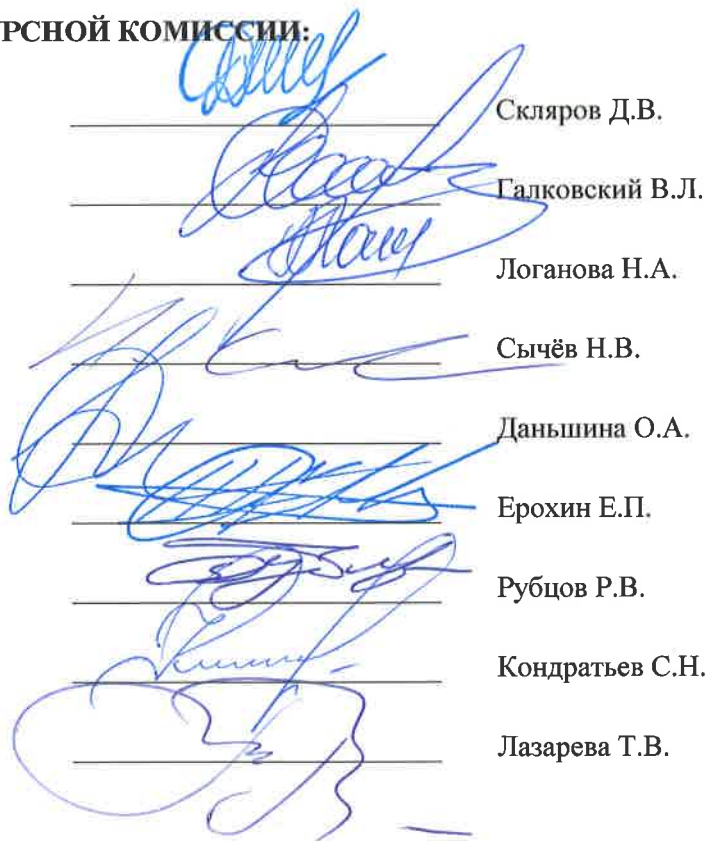 РСНОЙ КОМИССИИ:
Скляров Д.В.
Галковский В.Л.
Логанова Н.А.
Сычёв Н.В.
Даньшина О.А.
Ерохин Е.П.
Рубцов Р.В.
Кондратьев С.Н.
Лазарева Т.В.